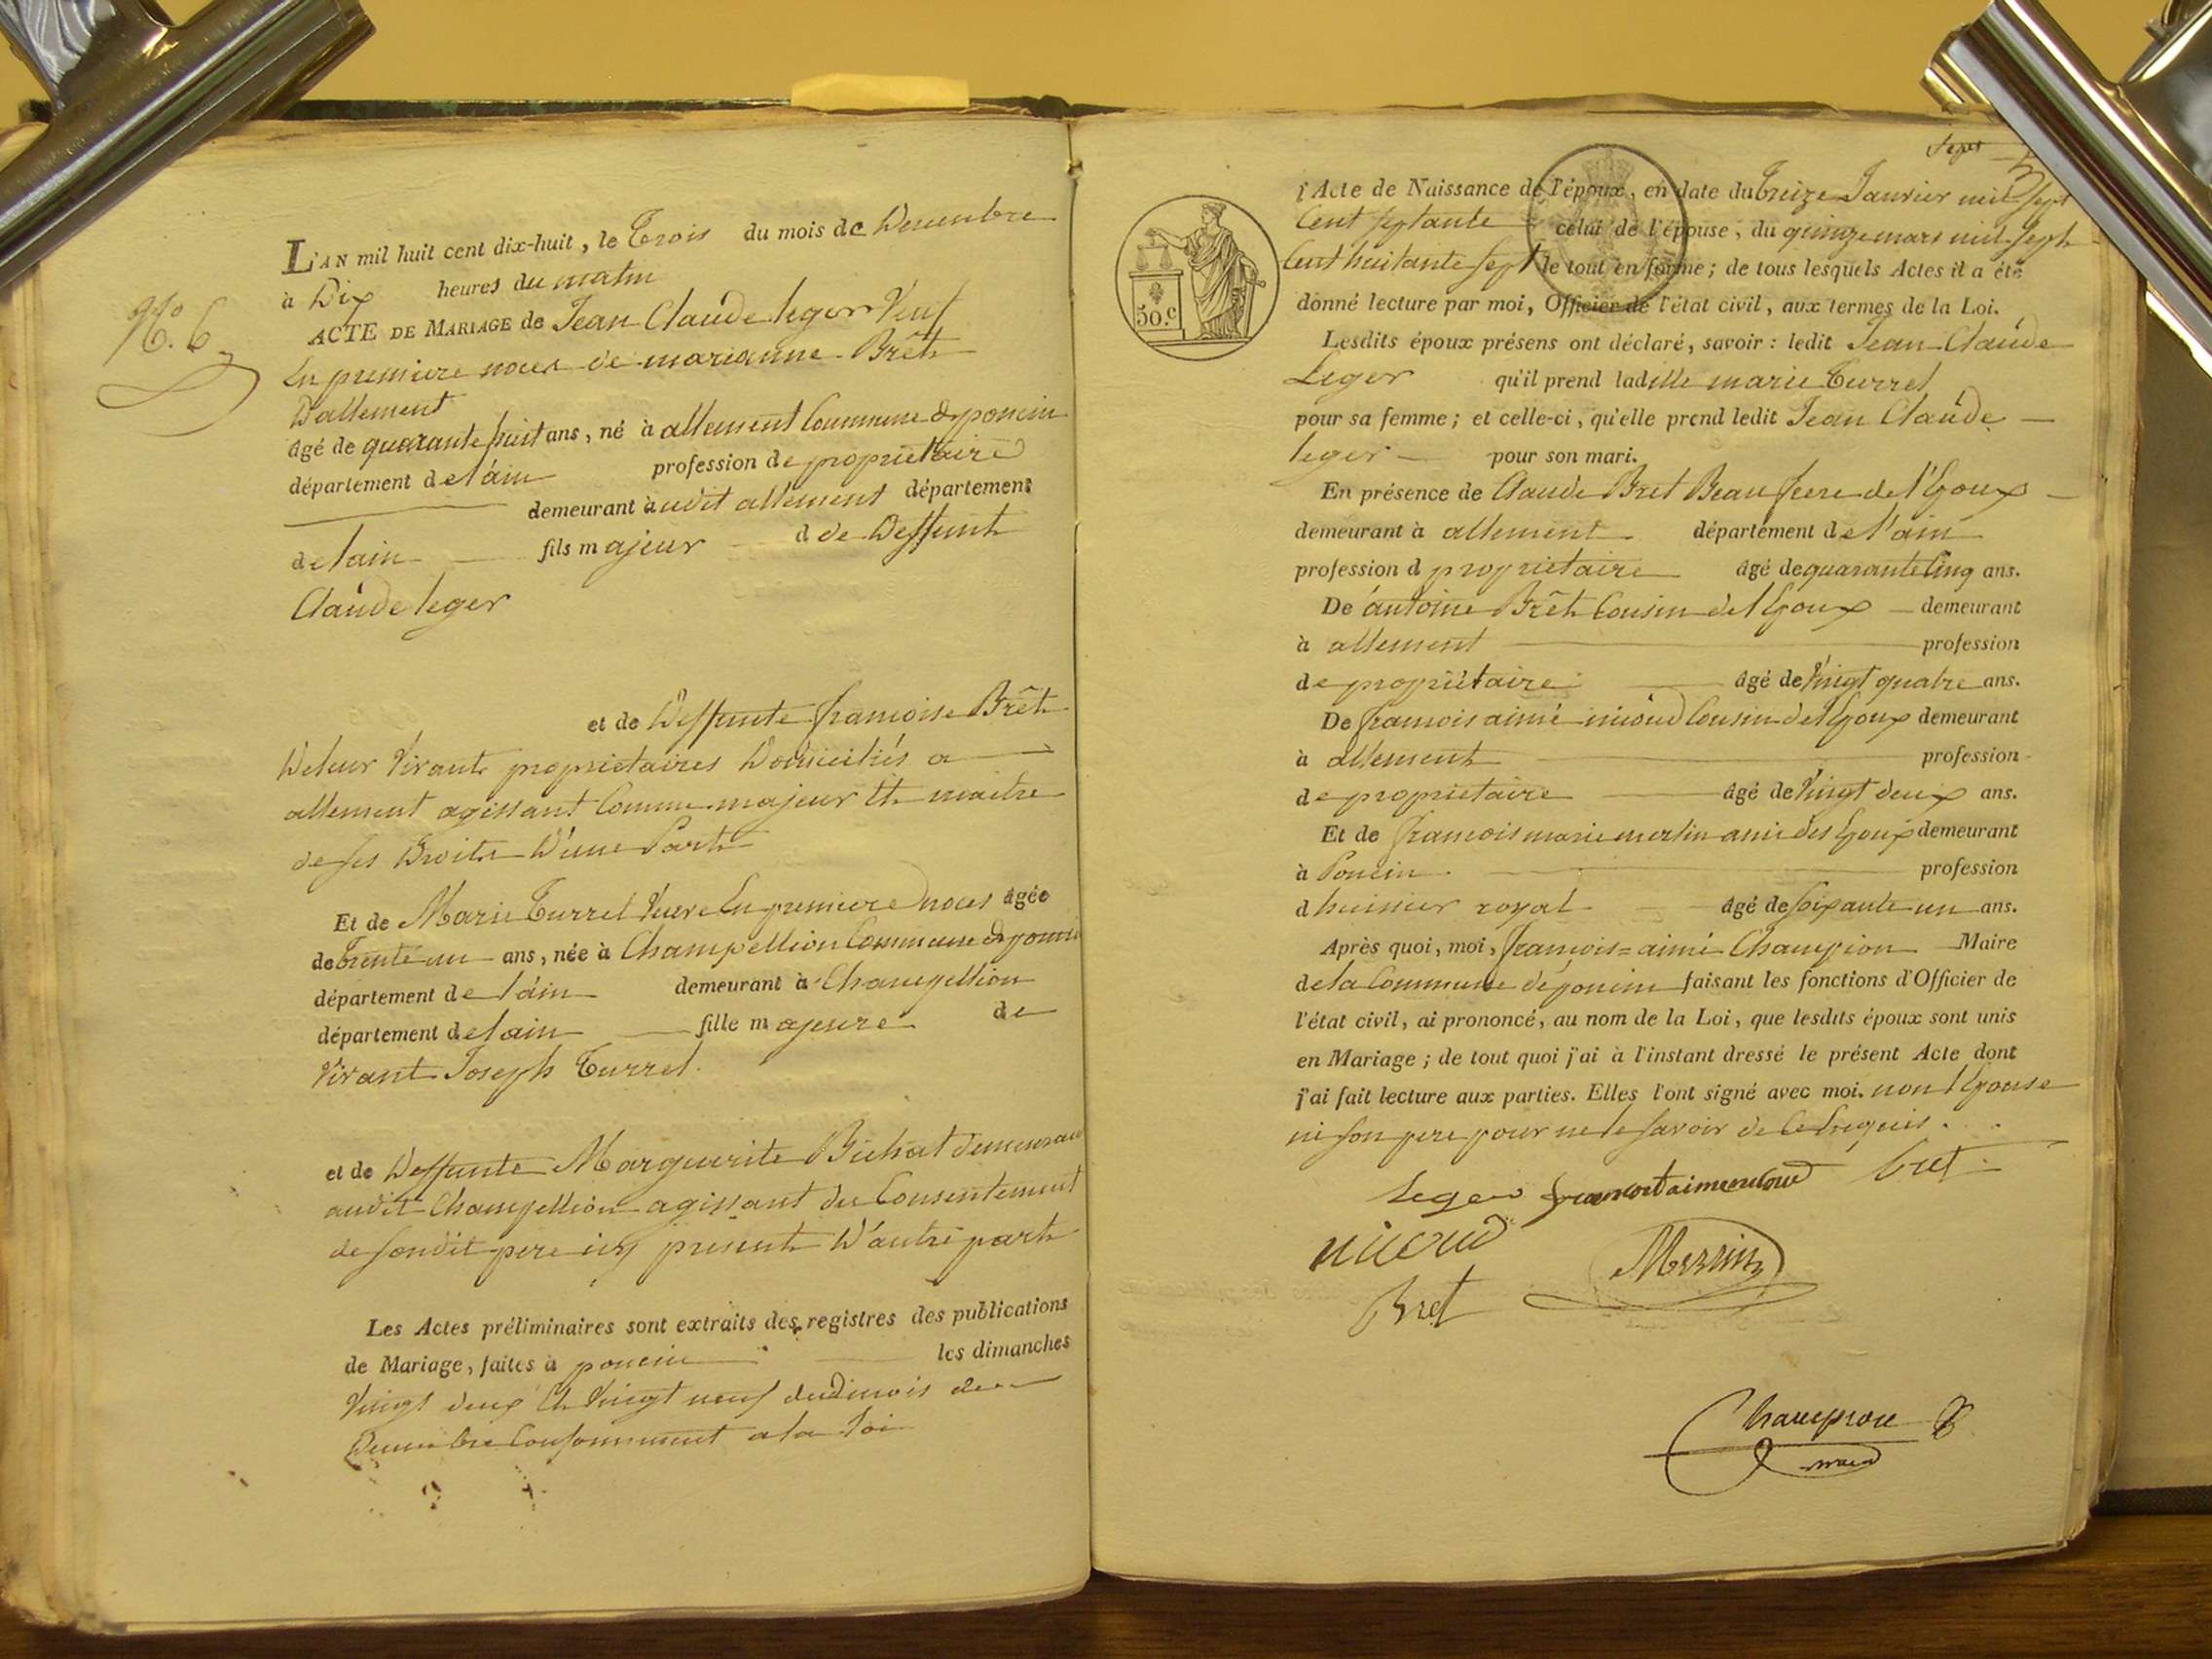 L'AN mil huit cent dix-huit, le Trois du mois de Decembre
à Dix heures du matin
N.º 6
ACTE DE MARIAGE de Jean Claude leger Veuf
En premiere noces de marianne Brêt
D'allement
âgé de quarante huit ans, né à allement Commune de poncin
département de l'ain profession de propriétaire
demeurant audit allement département
de lain fils majeur d de Deffunt
Claude leger
et de Deffunte francoise Brêt
De leur Vivant propriétaires Domiciliés a
allement agissant Comme majeur Et maitre
de ses Droits D'une Part
Et de Marie Turrel Veuve En premiere noces âgée
de Trente un ans, née à Champellion Commune de poncin
département de l'ain demeurant à Champellion
département de lain fille majeure de
Vivant Joseph Turrel.
et de Deffunte Marguerite Bichat demeurant
audit Champellion agissant du Consentement
de sondit pere icy present D'autre part
Les Actes préliminaires sont extraits des registres des publications
de Mariage, faites à poncin les dimanches
Vingt deux Et Vingt neuf du mois de
Conformement a la loi
Sept
l'Acte de Naissance de l'époux, en date du treize Janvier mil sept
Cent septante celui de l'épouse, du quinze mars mil sept
Cent huitante sept le tout en forme; de tous lesquels Actes il a été
50.c
donné lecture par moi, Officier de l'état civil, aux termes de la Loi.
Lesdits époux présens ont déclaré, savoir: ledit Jean Claude
Leger qu'il prend ladille marie Turrel
pour sa femme; et celle-ci, qu'elle prend ledit Jean Claude
leger pour son mari.
En présence de Claude Bret Beau frere de l'Epoux
demeurant à allement département de l'ain
profession d propriétaire âgé de quarante Cinq ans.
De antoine Brêt Cousin de l'Epoux demeurant
à allement profession
de propriétaire âgé de Vingt quatre ans.
De francois aimé nicoud Cousin de l'Epoux demeurant
à allement profession
de propriétaire âgé de Vingt deux ans.
Et de francois marie merlin ami des Epoux demeurant
à Poncin profession
d huissier royal âgé de soixante un ans.
Après quoi, moi, francois=aimé Champion Maire
de la Commune de poncin faisant les fonctions d'Officier de
l'état civil, ai prononcé, au nom de la Loi, que lesdits époux sont unis
en Mariage; de tout quoi j'ai à l'instant dressé le présent Acte dont
j'ai fait lecture aux parties. Elles l'ont signé avec moi. non l'Epouse
ni son pere pour ne le savoir de ce Enquis.
Leger bret
nicoud
Bret
Champion
maire